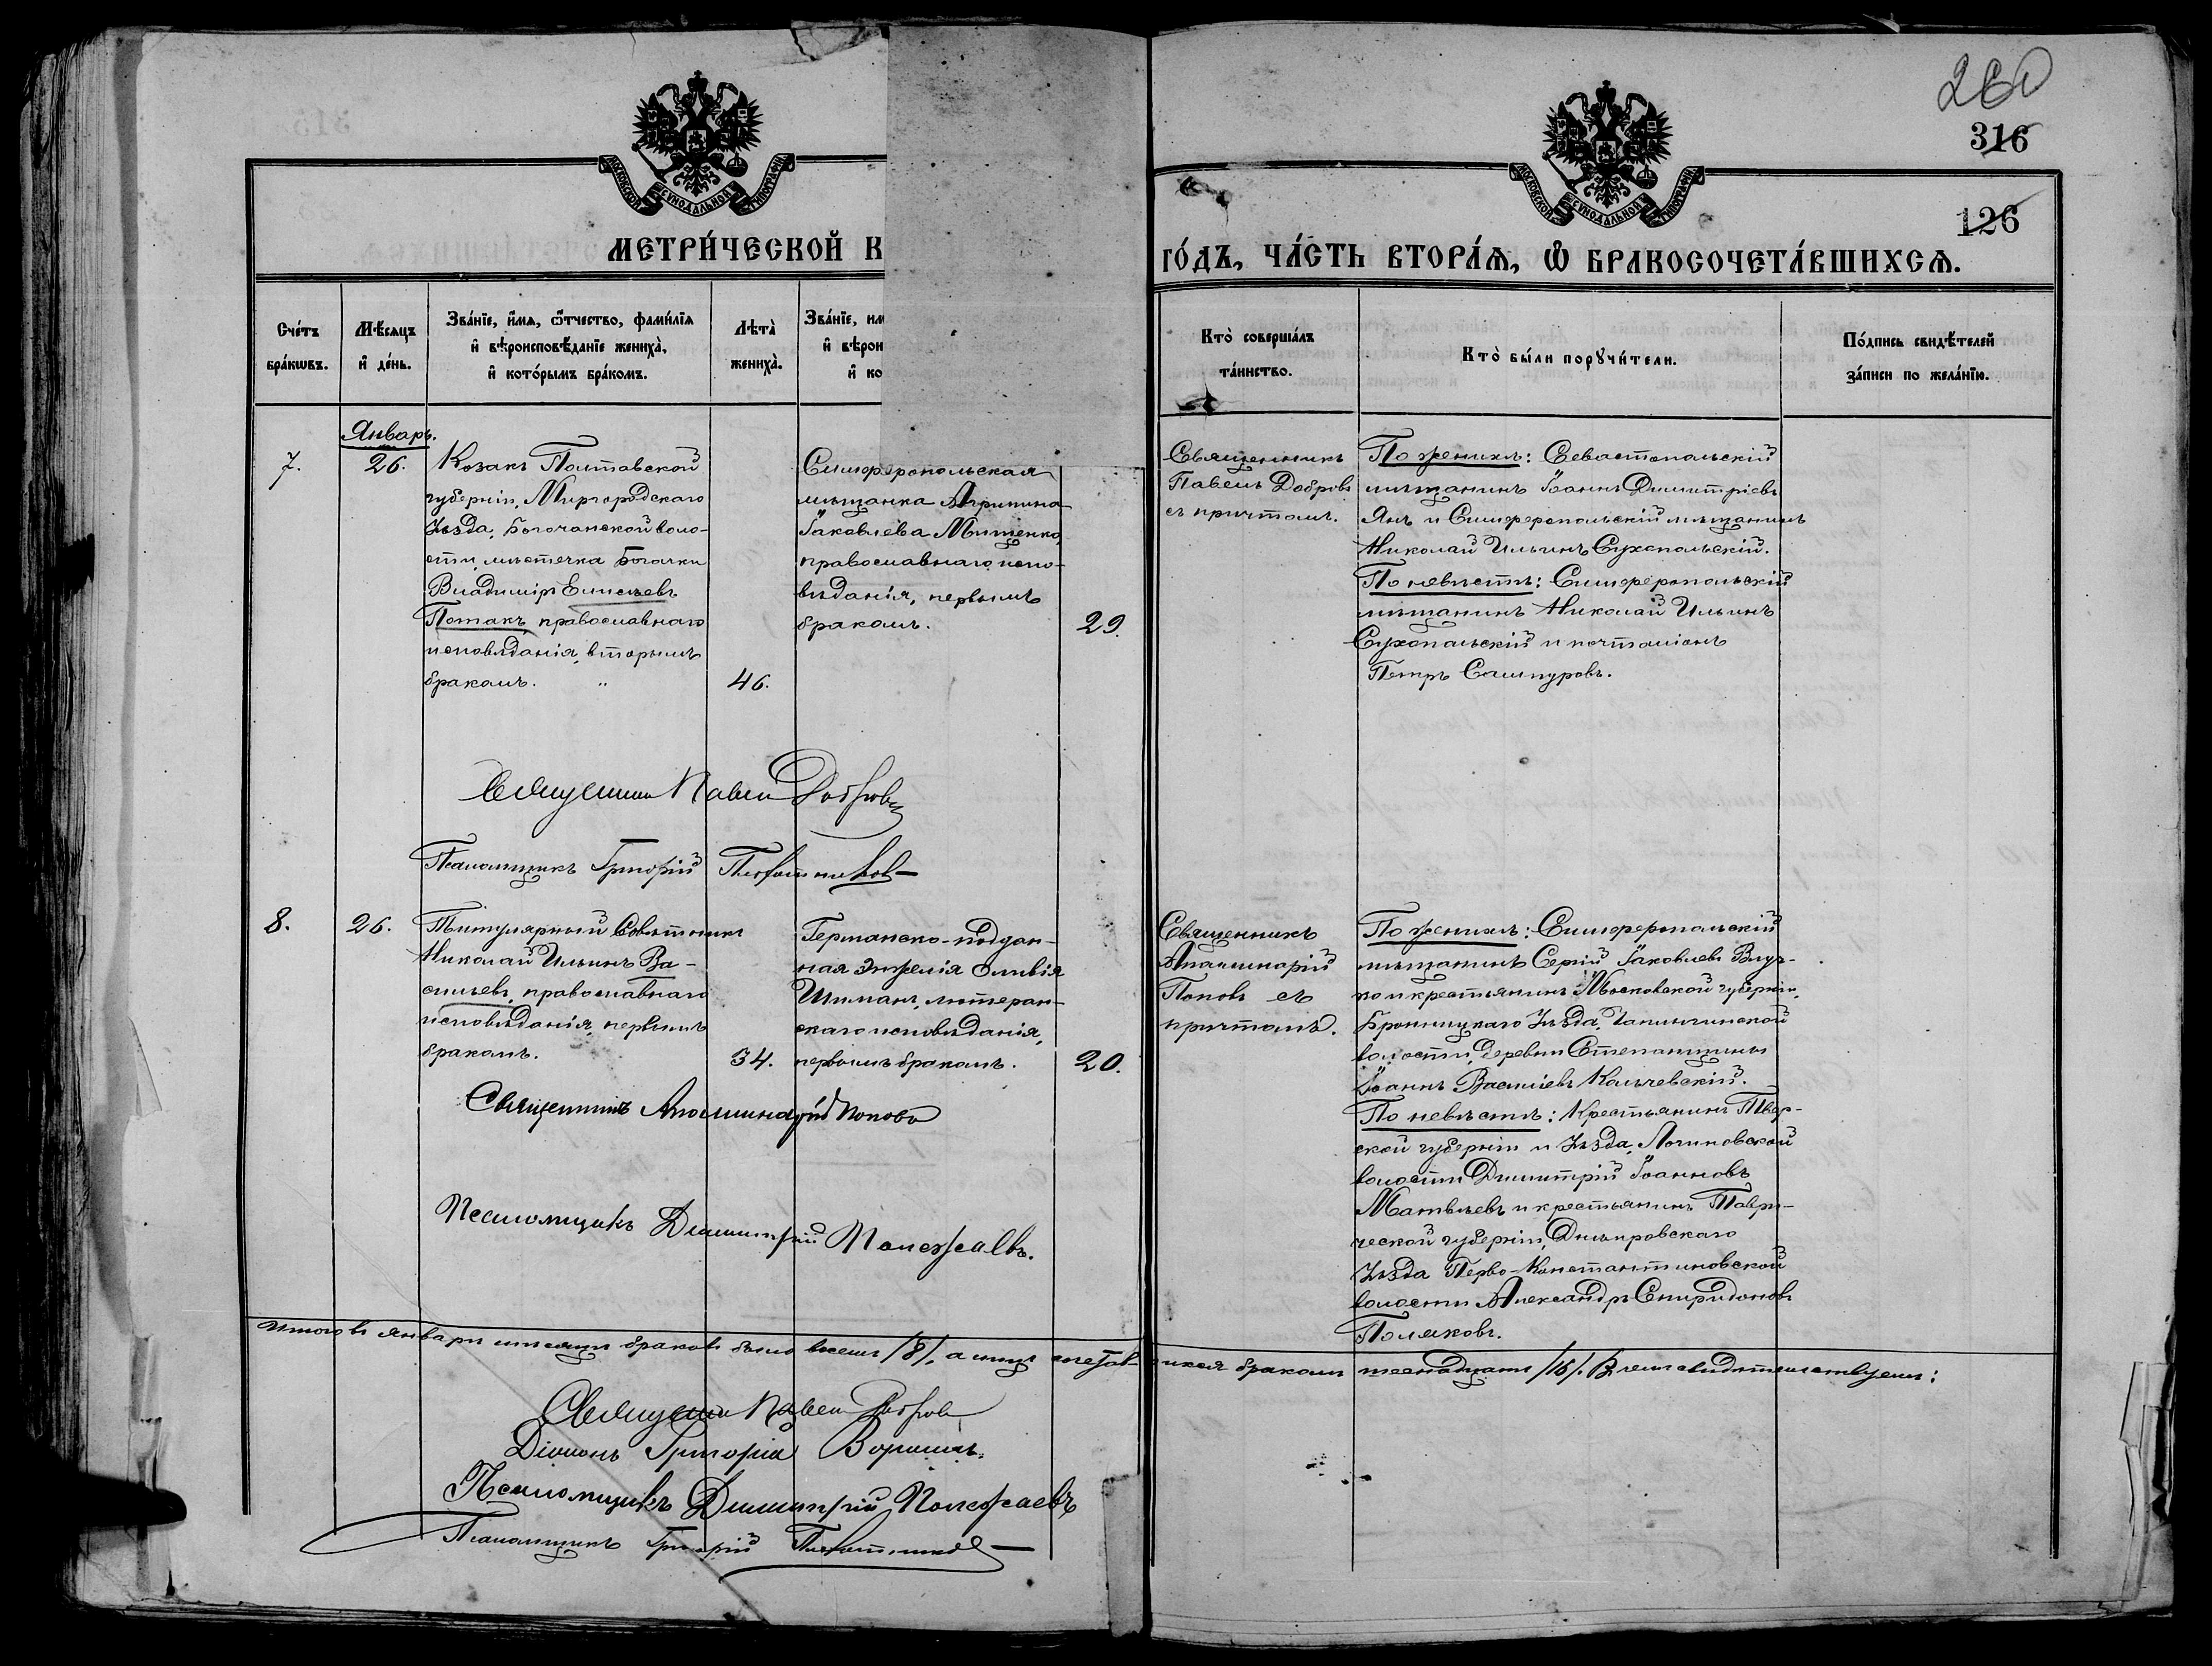 260
316
126
МОСКОВСКОЙ СѴНОДАЛЬНОЙ ТИПОГРАФІИ
МОСКОВСКОЙ СѴНОДАЛЬНОЙ ТИПОГРАФІИ
МЕТРИ́ЧЕСКОЙ К
ГО́ДЪ, ЧА́СТЬ ВТОРА́Ѧ, Ѽ БРАКОСОЧЕТА́ВШИХСѦ.
Сче́тъ
бра́кѡвъ.
Мѣ́сяцъ
и҆ де́нь.
Зва́нїе, и҆́мѧ, ѻ҆́тчество, фами́лїѧ
и҆ вѣроисповѣ́данїе жениха̀,
и҆ кото́рымъ бра́комъ.
Лѣта̀
жениха̀.
Зва́нїе, им
и҆ вѣрои
и҆ ко
Кто̀ соверша́лъ
та́инство.
Кто̀ бы́ли порꙋчи́тели.
По́дпись свидѣ́телей
за́писи по жела́нїю.
Январь.
7.
26.
Козакъ Полтавской
губерніи, Миргородскаго
уѣзда, Богочанской воло-
сти, мѣстечка Богачки
Владиміръ Елисѣевъ
Потакъ, православнаго
исповѣданія, вторымъ
бракомъ.
46.
Симферопольская
мѣщанка Агрипина
Іаковлева Мищенко,
православнаго испо-
вѣданія, первымъ
бракомъ.
29.
Священникъ
Павелъ Добровъ
съ причтомъ.
По женихѣ: Севастопольскій
мѣщанинъ Іоаннъ Димитріевъ
Янъ и Симферопольскій мѣщанинъ
Николай Ильинъ Сухопольскій.
По невѣстѣ: Симферопольскій
мѣщанинъ Николай Ильинъ
Сухопольскій и почталіонъ
Петръ Сампуровъ.
Священникъ Павелъ Добровъ
Псаломщикъ Григорій Плотниковъ
8.
26.
Титулярный Совѣтникъ
Николай Ильинъ Ва-
сильевъ, православнаго
исповѣданія, первымъ
бракомъ.
34.
Германско-поддан-
ная Энжелія Оливія
Шиманъ, лютеран-
скаго исповѣданія,
первымъ бракомъ.
20.
Священникъ
Аполлинарій
Поповъ съ
причтомъ.
По женихѣ: Симферопольскій
мѣщанинъ Сергій Іаковлевъ
и крестьянинъ Московской губерніи,
Бронницкаго уѣзда,
волости, деревни Степанщины
Іоаннъ Василіевъ Кольчевскій.
По невѣстѣ: Крестьянинъ Твер-
ской губерніи и уѣзда, Логиновской
волости Димитрій Іоанновъ
Матвѣевъ и крестьянинъ Таври-
ческой губерніи, Днѣпровскаго
уѣзда Перво-Константиновской
волости Александръ Спиридоновъ
Поляковъ.
Священникъ Аполлинарій Поповъ
Псаломщикъ Димитрій Полежаевъ.
Итого въ январѣ мѣсяцѣ браковъ было всѣхъ /8/, а лицъ сочетавшихся бракомъ шестнадцать /16/. В чемъ свидѣтельствуемъ:
Священникъ Павелъ Добровъ
Діаконъ Григорій
Псаломщикъ Димитрій Полежаевъ
Псаломщикъ Григорій Плотниковъ